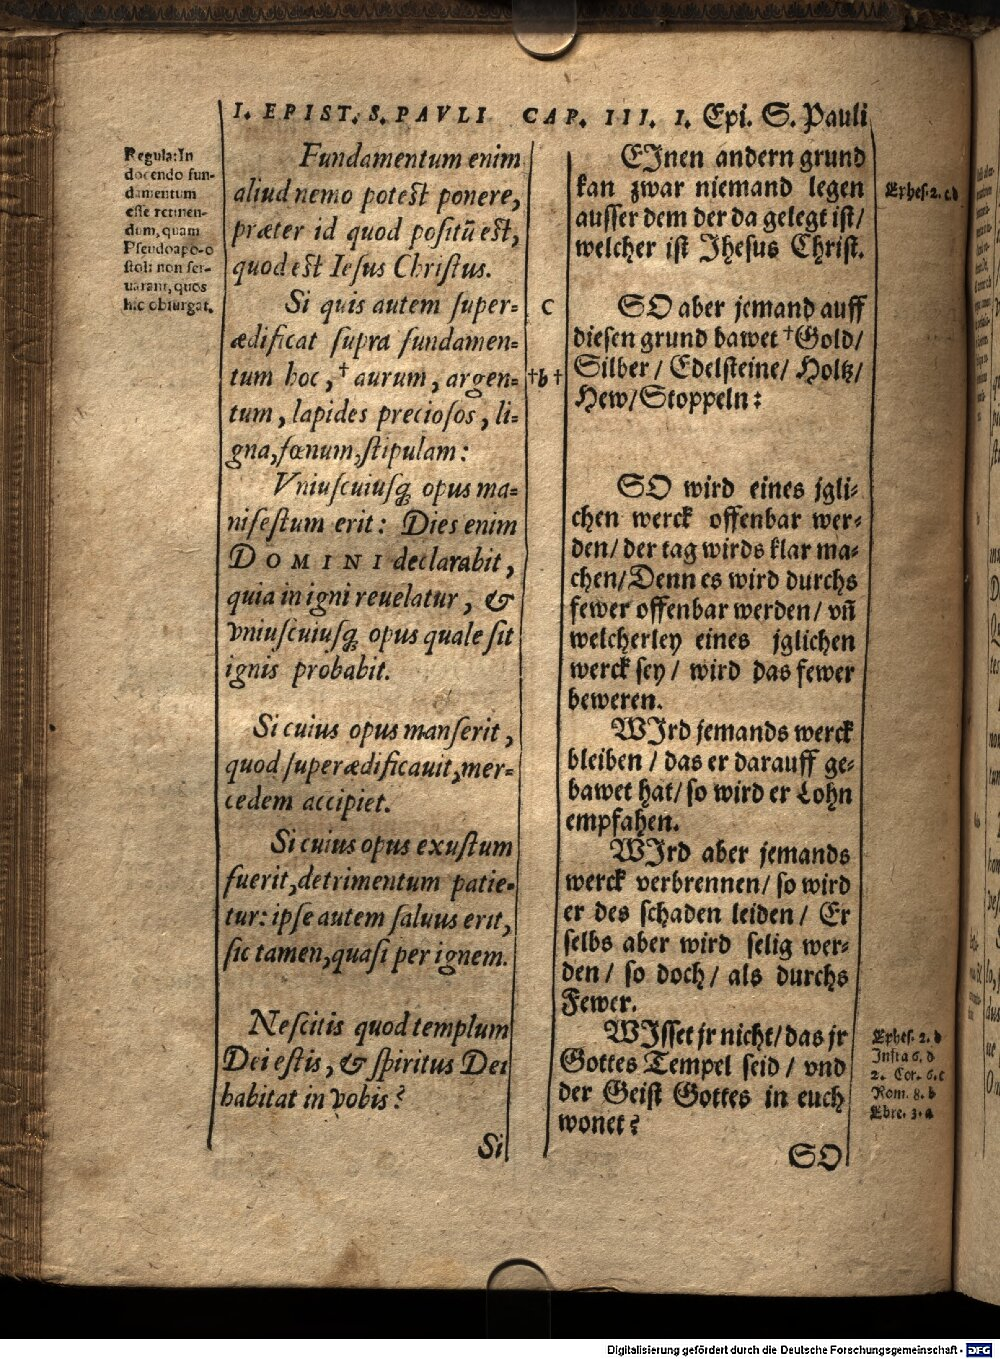 I. EPIST. S. PAVLI CAP. III. I. Epi. S. Pauli
Regula: In
docendo fun-
damentum
esse retinen-
dum, quam
Pseudoapo-
stoli non ser-
uarant, quos
hic obiurgat.
Fundamentum enim
aliud nemo potest ponere,
præter id quod positū est,
quod est Iesus Christus.
Si quis autem super-
ædificat supra fundamen-
tum hoc, † aurum, argen-
tum, lapides preciosos, li-
gna, fœnum, stipulam:
Vniuscuiusq; opus ma-
nifestum erit: Dies enim
DOMINI declarabit,
quia in igni reuelatur, &
vniuscuiusq; opus quale sit
ignis probabit.
Si cuius opus manserit,
quod superædificauit, mer-
cedem accipiet.
Si cuius opus exustum
fuerit, detrimentum patie-
tur: ipse autem saluus erit,
sic tamen, quasi per ignem.
Nescitis quod templum
Dei estis, & spiritus Dei
habitat in vobis?
Si
C
† b †
EJnen andern grund
kan zwar niemand legen
ausser dem der da gelegt ist/
welcher ist Jhesus Christ.
SO aber jemand auff
diesen grund bawet † Gold/
Silber/ Edelsteine/ Holtz/
Hew/ Stoppeln:
SO wird eines jgli-
chen werck offenbar wer-
den/ der tag wirds klar ma-
chen/ Denn es wird durchs
fewer offenbar werden/ vñ
welcherley eines jglichen
werck sey/ wird das fewer
beweren.
WJrd jemands werck
bleiben/ das er darauff ge-
bawet hat/ so wird er Lohn
empfahen.
WJrd aber jemands
werck verbrennen/ so wird
er des schaden leiden/ Er
selbs aber wird selig wer-
den/ so doch/ als durchs
Fewer.
WJsset jr nicht/ das jr
Gottes Tempel seid/ vnd
der Geist Gottes in euch
wonet?
SO
Ephes. 2. c. d
Ephes. 2. d
Infra 6. d
2. Cor. 6. c
Rom. 8. b
Ebre. 3. a
Digitalisierung gefördert durch die Deutsche Forschungsgemeinschaft - DFG